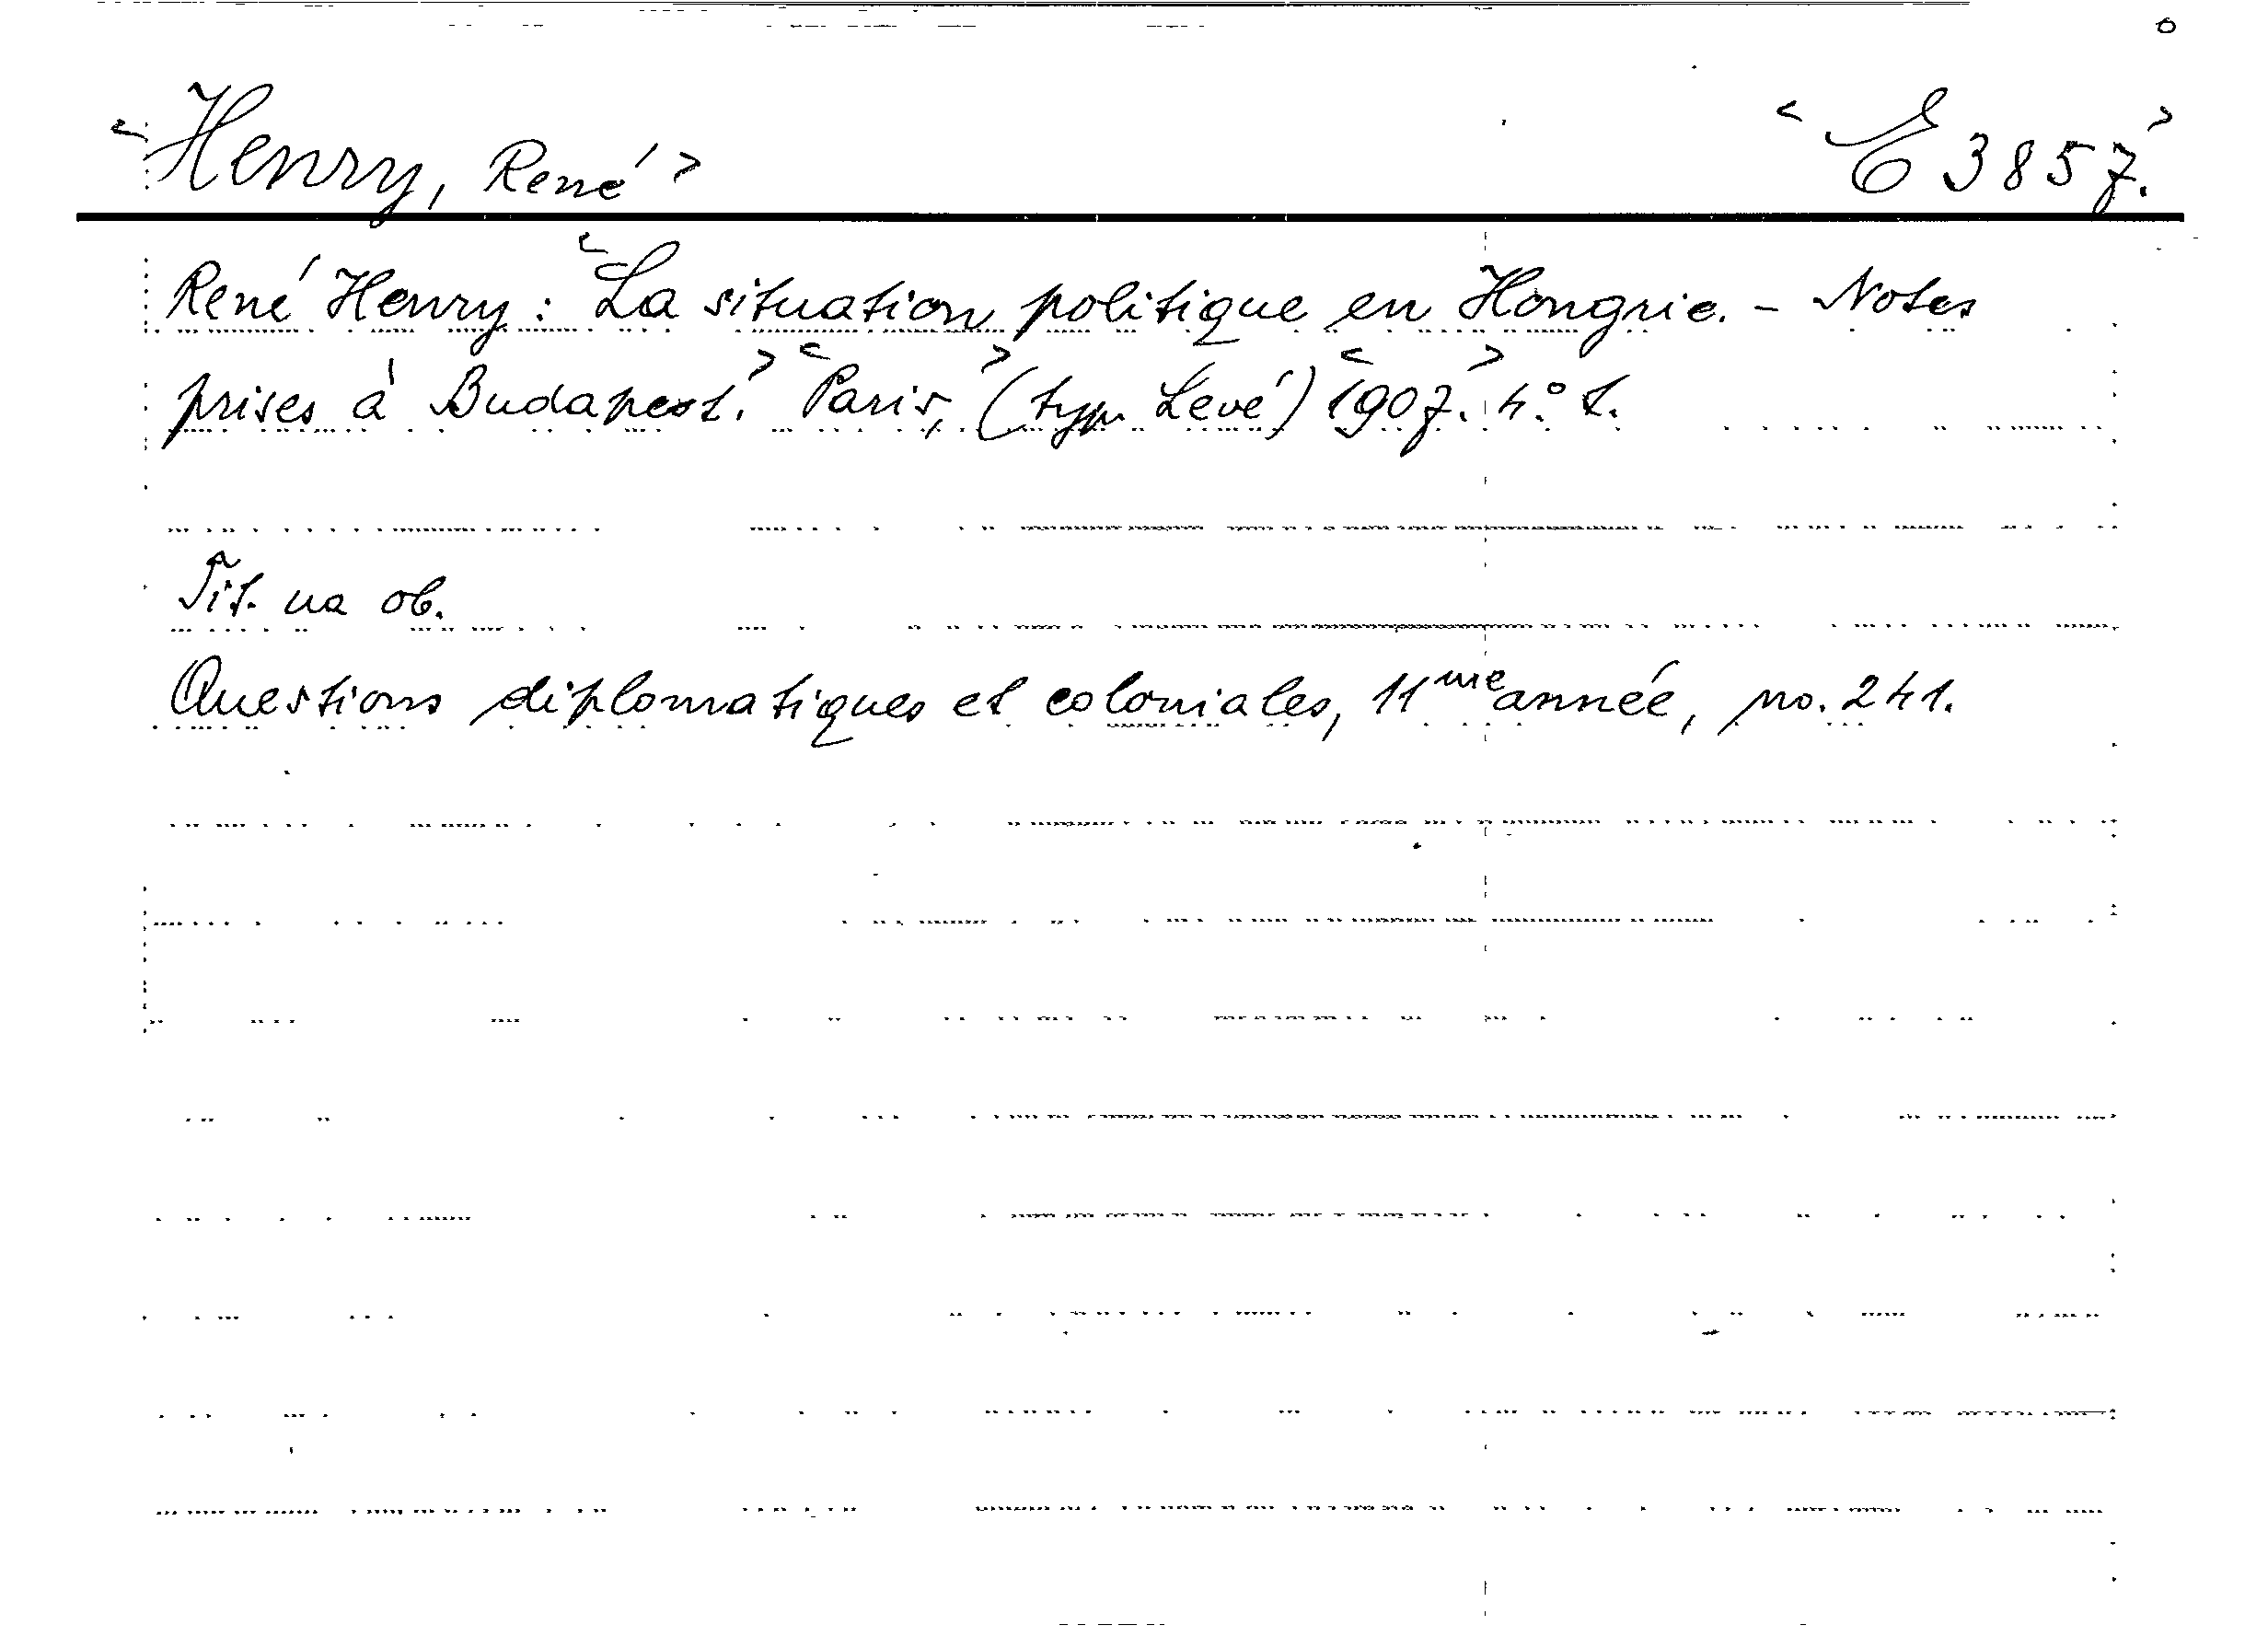 <Henry, René>
<E 3857.>
René Henry: <La situation politique en Hongrie. - Notes
prises à Budapest.> <Paris,> (typ. Levé) <1907.> 4° t.
Tit. na ob.
Questions diplomatiques et coloniales, 11me année, no. 241.